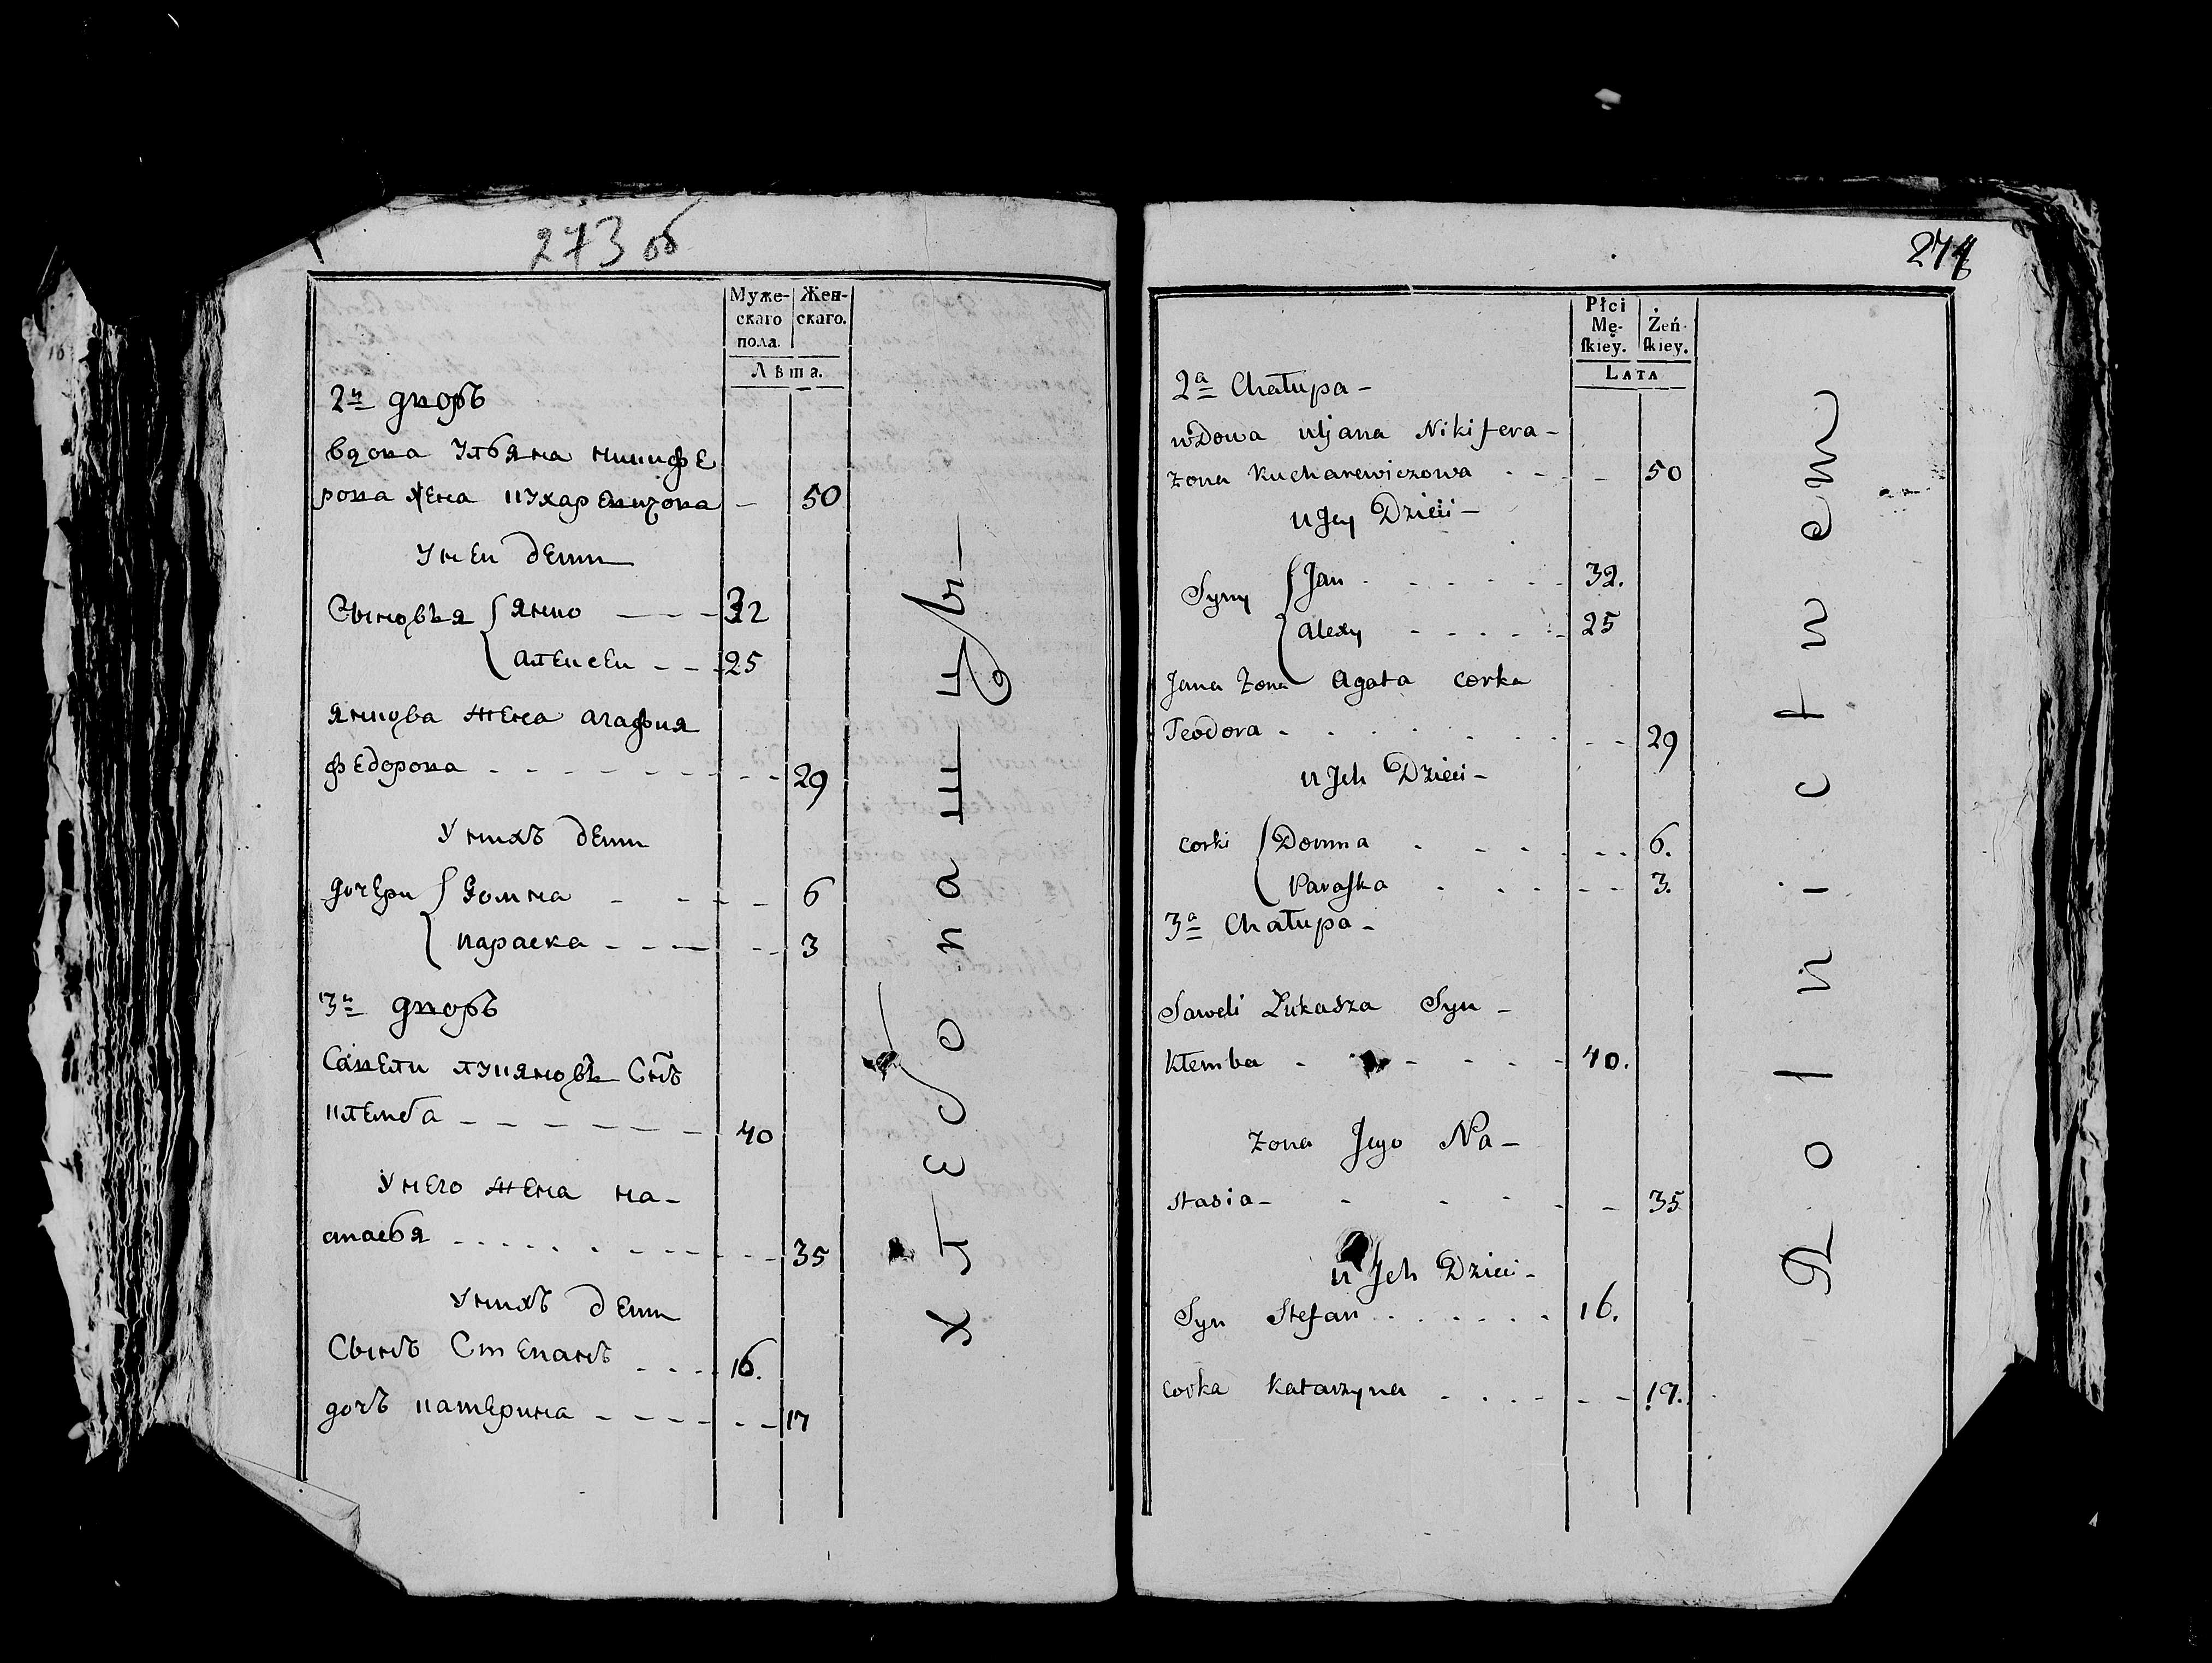 273 об
Муже-
скаго
пола.
Жен-
скаго.
Лѣта.
2й дворъ
вдова Ульяна никифе
рова жена кухаревичова — 50
У неи дети
Сыновья { янко — — — 32
алексеи — — 25
янкова жена агафия
федорова - - - - - - - - 29
У нихъ дети
дочери { домна - - - - 6
параска - - — - - 3
3й дворъ
Савели лукяновъ Снъ
клемба — — — — — — 40
У него жена на-
стасья - - - - - - - - - 35
У нихъ дети
Сынъ Степанъ - - - 16.
дочь катерина - - - - - - 17
хлебопашцы —
274
Płci
Mę-
ſkiey.
Żeń-
ſkiey.
LATA
2a Chałupa -
wdowa uljana Nikifera -
żona Kucharewiczowa - - - 50
u Jey Dzieci -
Syny { Jan - - - - - - 32.
alexy - - - - - - 25
Jana żona Agata corka
Teodora - - - - - - - - - 29
u Jch Dzieci -
corki { Domna - - - - - - 6.
Paraſka - - - - - - 3.
3a Chałupa -
Saweli Łukasza Syn -
Klemba - - - - - - 40.
żona Jego Na-
stasia - - - - - - 35
u Jch Dzieci -
Syn Stefan - - - - - - 16.
corka Katarzyna - - - - - - 17.
Rolnictwem